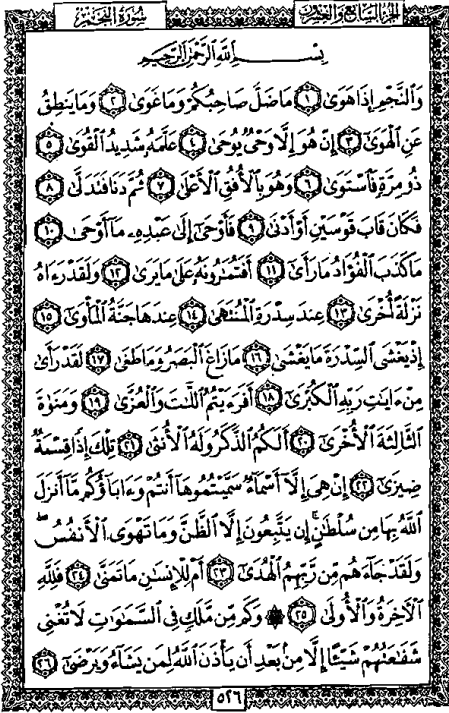 الجزء السابع والعشرون سورة النجم
بسم الله الرحمن الرحيم
وَٱلنَّجۡمِ إِذَا هَوَىٰ ١ مَا ضَلَّ صَاحِبُكُمۡ وَمَا غَوَىٰ ٢ وَمَا يَنطِقُ
عَنِ ٱلۡهَوَىٰٓ ٣ إِنۡ هُوَ إِلَّا وَحۡيٞ يُوحَىٰ ٤ عَلَّمَهُۥ شَدِيدُ ٱلۡقُوَىٰ ٥
ذُو مِرَّةٖ فَٱسۡتَوَىٰ ٦ وَهُوَ بِٱلۡأُفُقِ ٱلۡأَعۡلَىٰ ٧ ثُمَّ دَنَا فَتَدَلَّىٰ ٨
فَكَانَ قَابَ قَوۡسَيۡنِ أَوۡ أَدۡنَىٰ ٩ فَأَوۡحَىٰٓ إِلَىٰ عَبۡدِهِۦ مَآ أَوۡحَىٰ ١٠
مَا كَذَبَ ٱلۡفُؤَادُ مَا رَأَىٰٓ ١١ أَفَتُمَٰرُونَهُۥ عَلَىٰ مَا يَرَىٰ ١٢ وَلَقَدۡ رَءَاهُ
نَزۡلَةً أُخۡرَىٰ ١٣ عِندَ سِدۡرَةِ ٱلۡمُنتَهَىٰ ١٤ عِندَهَا جَنَّةُ ٱلۡمَأۡوَىٰٓ ١٥
إِذۡ يَغۡشَى ٱلسِّدۡرَةَ مَا يَغۡشَىٰ ١٦ مَا زَاغَ ٱلۡبَصَرُ وَمَا طَغَىٰ ١٧ لَقَدۡ رَأَىٰ
مِنۡ ءَايَٰتِ رَبِّهِ ٱلۡكُبۡرَىٰٓ ١٨ أَفَرَءَيۡتُمُ ٱللَّٰتَ وَٱلۡعُزَّىٰ ١٩ وَمَنَوٰةَ
ٱلثَّالِثَةَ ٱلۡأُخۡرَىٰٓ ٢٠ أَلَكُمُ ٱلذَّكَرُ وَلَهُ ٱلۡأُنثَىٰ ٢١ تِلۡكَ إِذٗا قِسۡمَةٞ
ضِيزَىٰٓ ٢٢ إِنۡ هِيَ إِلَّآ أَسۡمَآءٞ سَمَّيۡتُمُوهَآ أَنتُمۡ وَءَابَآؤُكُم مَّآ أَنزَلَ
ٱللَّهُ بِهَا مِن سُلۡطَٰنٍۚ إِن يَتَّبِعُونَ إِلَّا ٱلظَّنَّ وَمَا تَهۡوَى ٱلۡأَنفُسُۖ
وَلَقَدۡ جَآءَهُم مِّن رَّبِّهِمُ ٱلۡهُدَىٰٓ ٢٣ أَمۡ لِلۡإِنسَٰنِ مَا تَمَنَّىٰ ٢٤ فَلِلَّهِ
ٱلۡأٓخِرَةُ وَٱلۡأُولَىٰ ٢٥ ۞ وَكَم مِّن مَّلَكٖ فِي ٱلسَّمَٰوَٰتِ لَا تُغۡنِي
شَفَٰعَتُهُمۡ شَيۡـًٔا إِلَّا مِنۢ بَعۡدِ أَن يَأۡذَنَ ٱللَّهُ لِمَن يَشَآءُ وَيَرۡضَىٰٓ ٢٦
٥٢٦